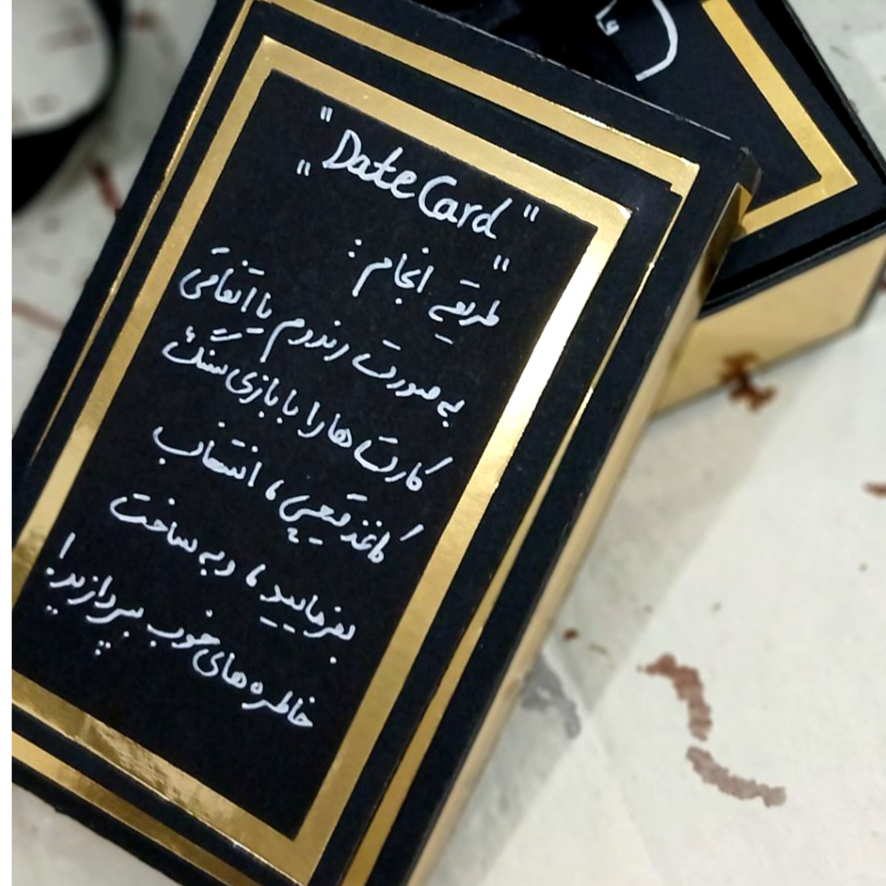 "Date Card"
" طریقه انجام : "
به صورت رندوم یا اتفاقی
کارت ها را با بازی سنگ
کاغذ قیچی ، انتخاب
بفرمایید ، و به ساخت
خاطره های خوب بپردازید!